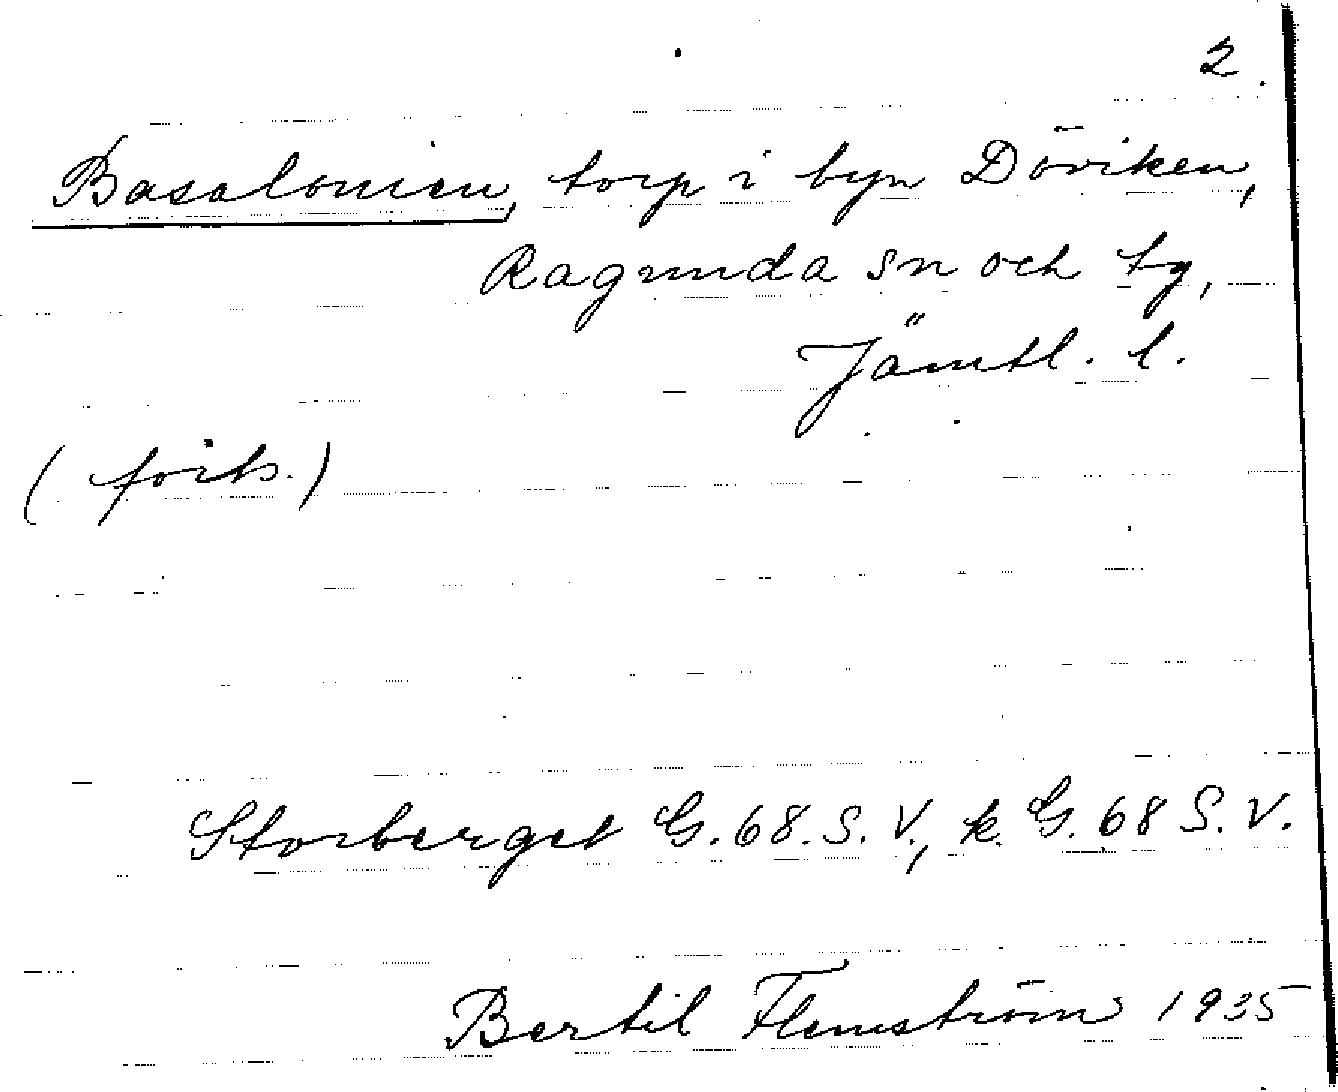 2.
Basalonien, torp i byn Döviken,
Ragunda sn och tg,
Jämtl. l.
(forts.)
Storberget G. 68. S. V., k. G. 68 S. V.
Bertil Flemström 1935